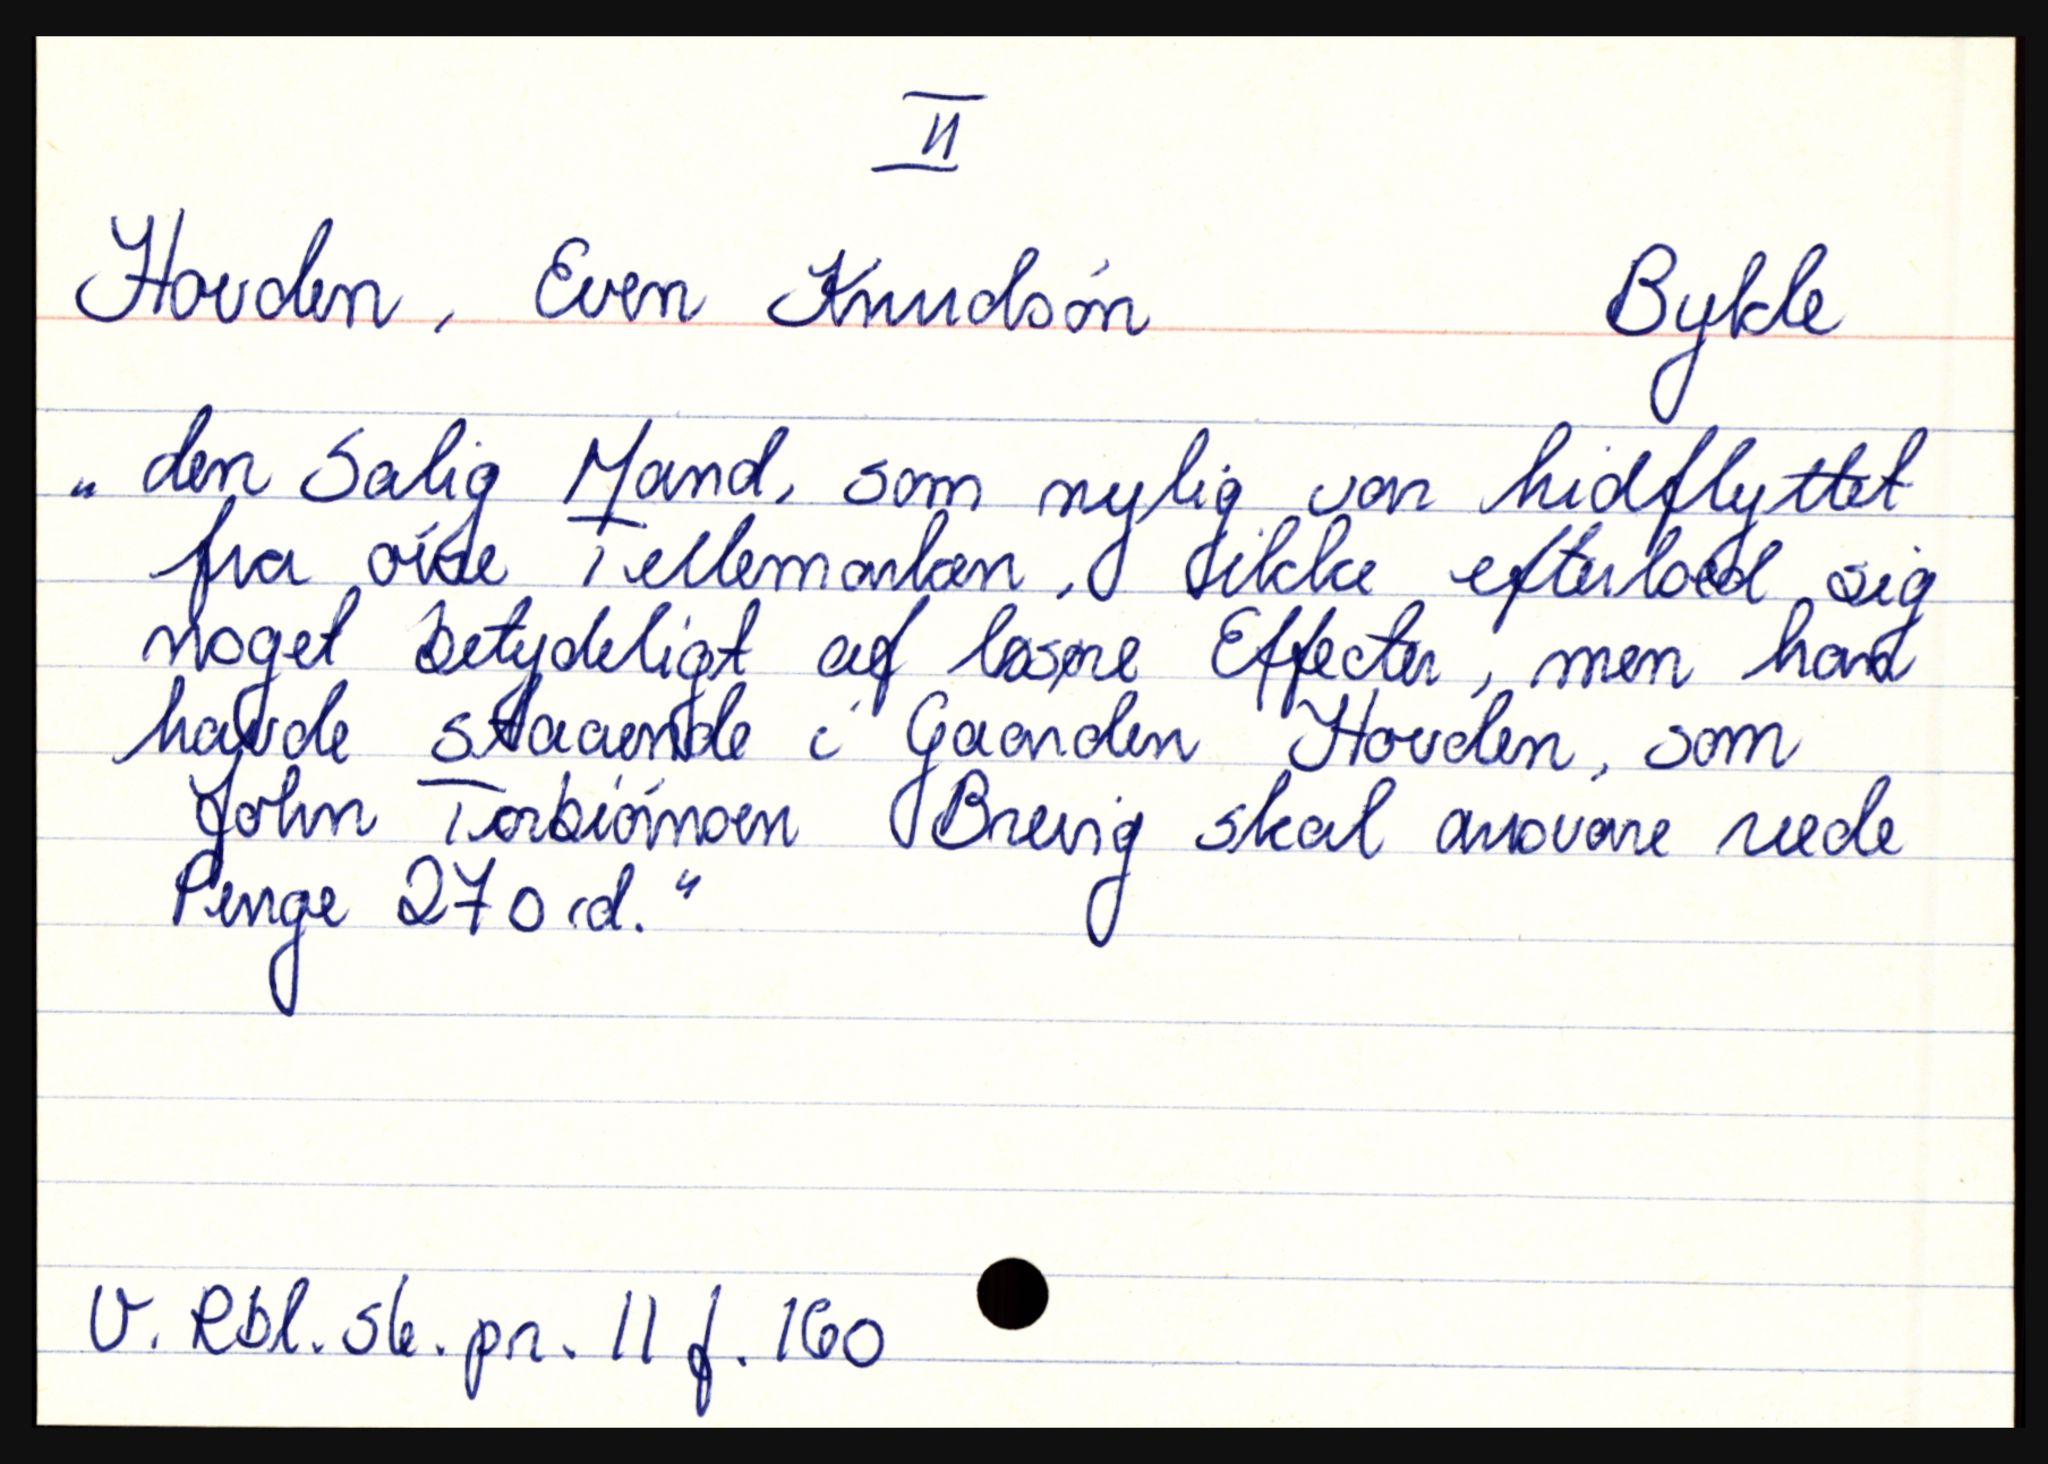 II
Hovden, Even Knudsón Bykle
„ den Salig Mand, som nylig var hidflyttet
fra øvre Tellemarken, ikke efterloed sig
noget betydeligt af løsøre Effecter, men hand
havde staaende i Gaarden Hovden, som
John Torbiørnsen Brevig skal ansvare reede
Penge 270 rd."
V. Rbl. sk. pr. 11 f. 160